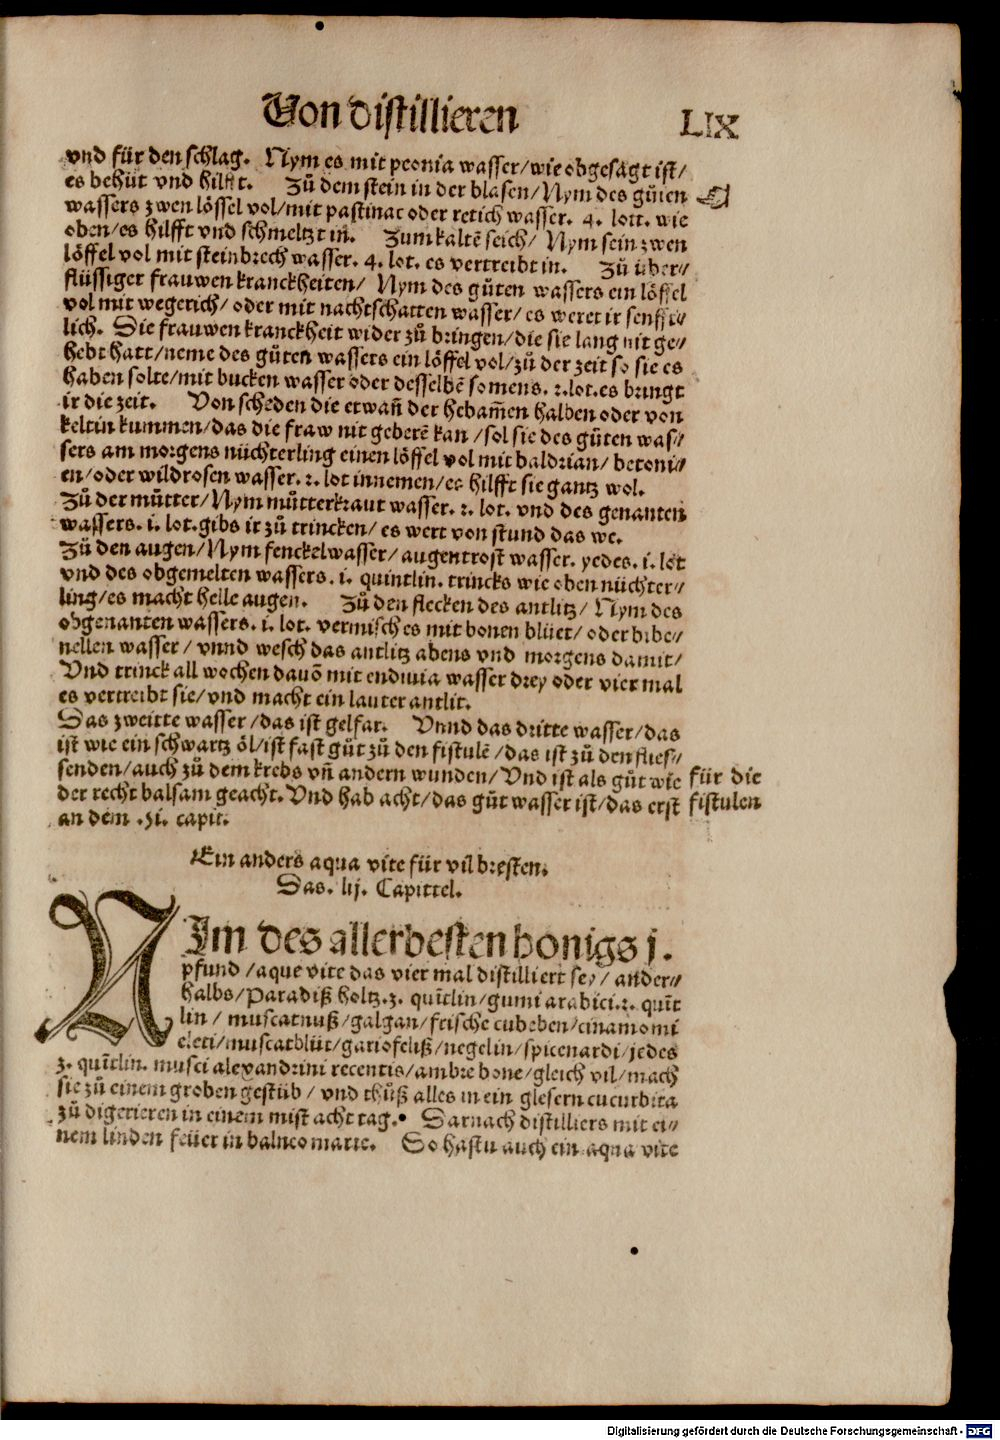 Von distillieren
LIX
vnd für den schlag. Nym es mit peonia wasser/wie obgesagt ist/
es behüt vnd hilfft. Zů dem stein in der blasen/Nym des gůten
wassers zwen löffel vol/mit pastinac oder retich wasser. 4. lott. wie
oben/es hilfft vnd schmeltzt in. Zum kaltē seich/ Nym sein zwen
löffel vol mit steinbrech wasser. 4. lot. es vertreibt in. Zů über//
flüssiger frauwen kranckheiten/ Nym des gůten wassers ein löffel
vol mit wegerich/ oder mit nachtschatten wasser/ es weret ir senffti//
lich. Die frauwen kranckheit wider zů bringen/die sie lang nit ge//
hebt hatt/neme des gůten wassers ein löffel vol/zů der zeit so sie es
haben solte/mit bucken wasser oder desselbē somens. 2.lot.es bringt
ir die zeit. Von scheden die etwañ der hebam̄en halben oder von
keltin kummen/das die fraw nit geberē kan/sol sie des gůten was//
sers am morgens nüchterling einen löffel vol mit baldrian/ betoni//
en/oder wildrosen wasser. 2. lot innemen/es hilfft sie gantz wol.
Zů der můtter/Nym můtterkraut wasser. 2. lot. vnd des genanten
wassers. i. lot.gibs ir zů trincken/ es wert von stund das we.
Zů den augen/Nym fenckelwasser/augentrost wasser. yedes. i. lot
vnd des obgemelten wassers. i. quintlin. trincks wie oben nüchter//
ling/es macht helle augen. Zů den flecken des antlitz/ Nym des
obgenanten wassers. i. lot. vermisch es mit bonen blüet/ oder bibe//
nellen wasser/ vnnd wesch das antlitz abens vnd morgens damit/
Vnd trinck all wochen dauō mit endiuia wasser drey oder vier mal
es vertreibt sie/vnd macht ein lauter antlit.
Das zweitte wasser/das ist gelfar. Vnnd das dritte wasser/das
ist wie ein schwartz öl/ist fast gůt zů den fistulē/das ist zů den flies//
senden/auch zů dem krebs vñ andern wunden/Vnd ist als gůt wie
der recht balsam geacht. Vnd hab acht/das gůt wasser ist/das erst
an dem .li. capit.
für die
fistulen
Ein anders aqua vite für vil bresten.
Das. lij. Capittel.
NIm des allerbesten honigs j.
pfund/aque vite das vier mal distilliert sey/ ander//
halbs/Paradiß holtz.3. quītlin/gumi arabici.2. quīt
lin/ muscatnuß/galgan/frische cubeben/cinamomi
electi/muscatblüt/gariofeliß/negelin/spicenardi/jedes
3. quītlin. musci alexandrini recentis/ambre bone/gleich vil/mach
sie zů einem groben gestüb/ vnd thůß alles in ein glesern cucurbita
zů digerieren in einem mist acht tag. Darnach distilliers mit ei//
nem linden feüer in balneo marie. So hastu auch ein aqua vite
Digitalisierung gefördert durch die Deutsche Forschungsgemeinschaft - DFG